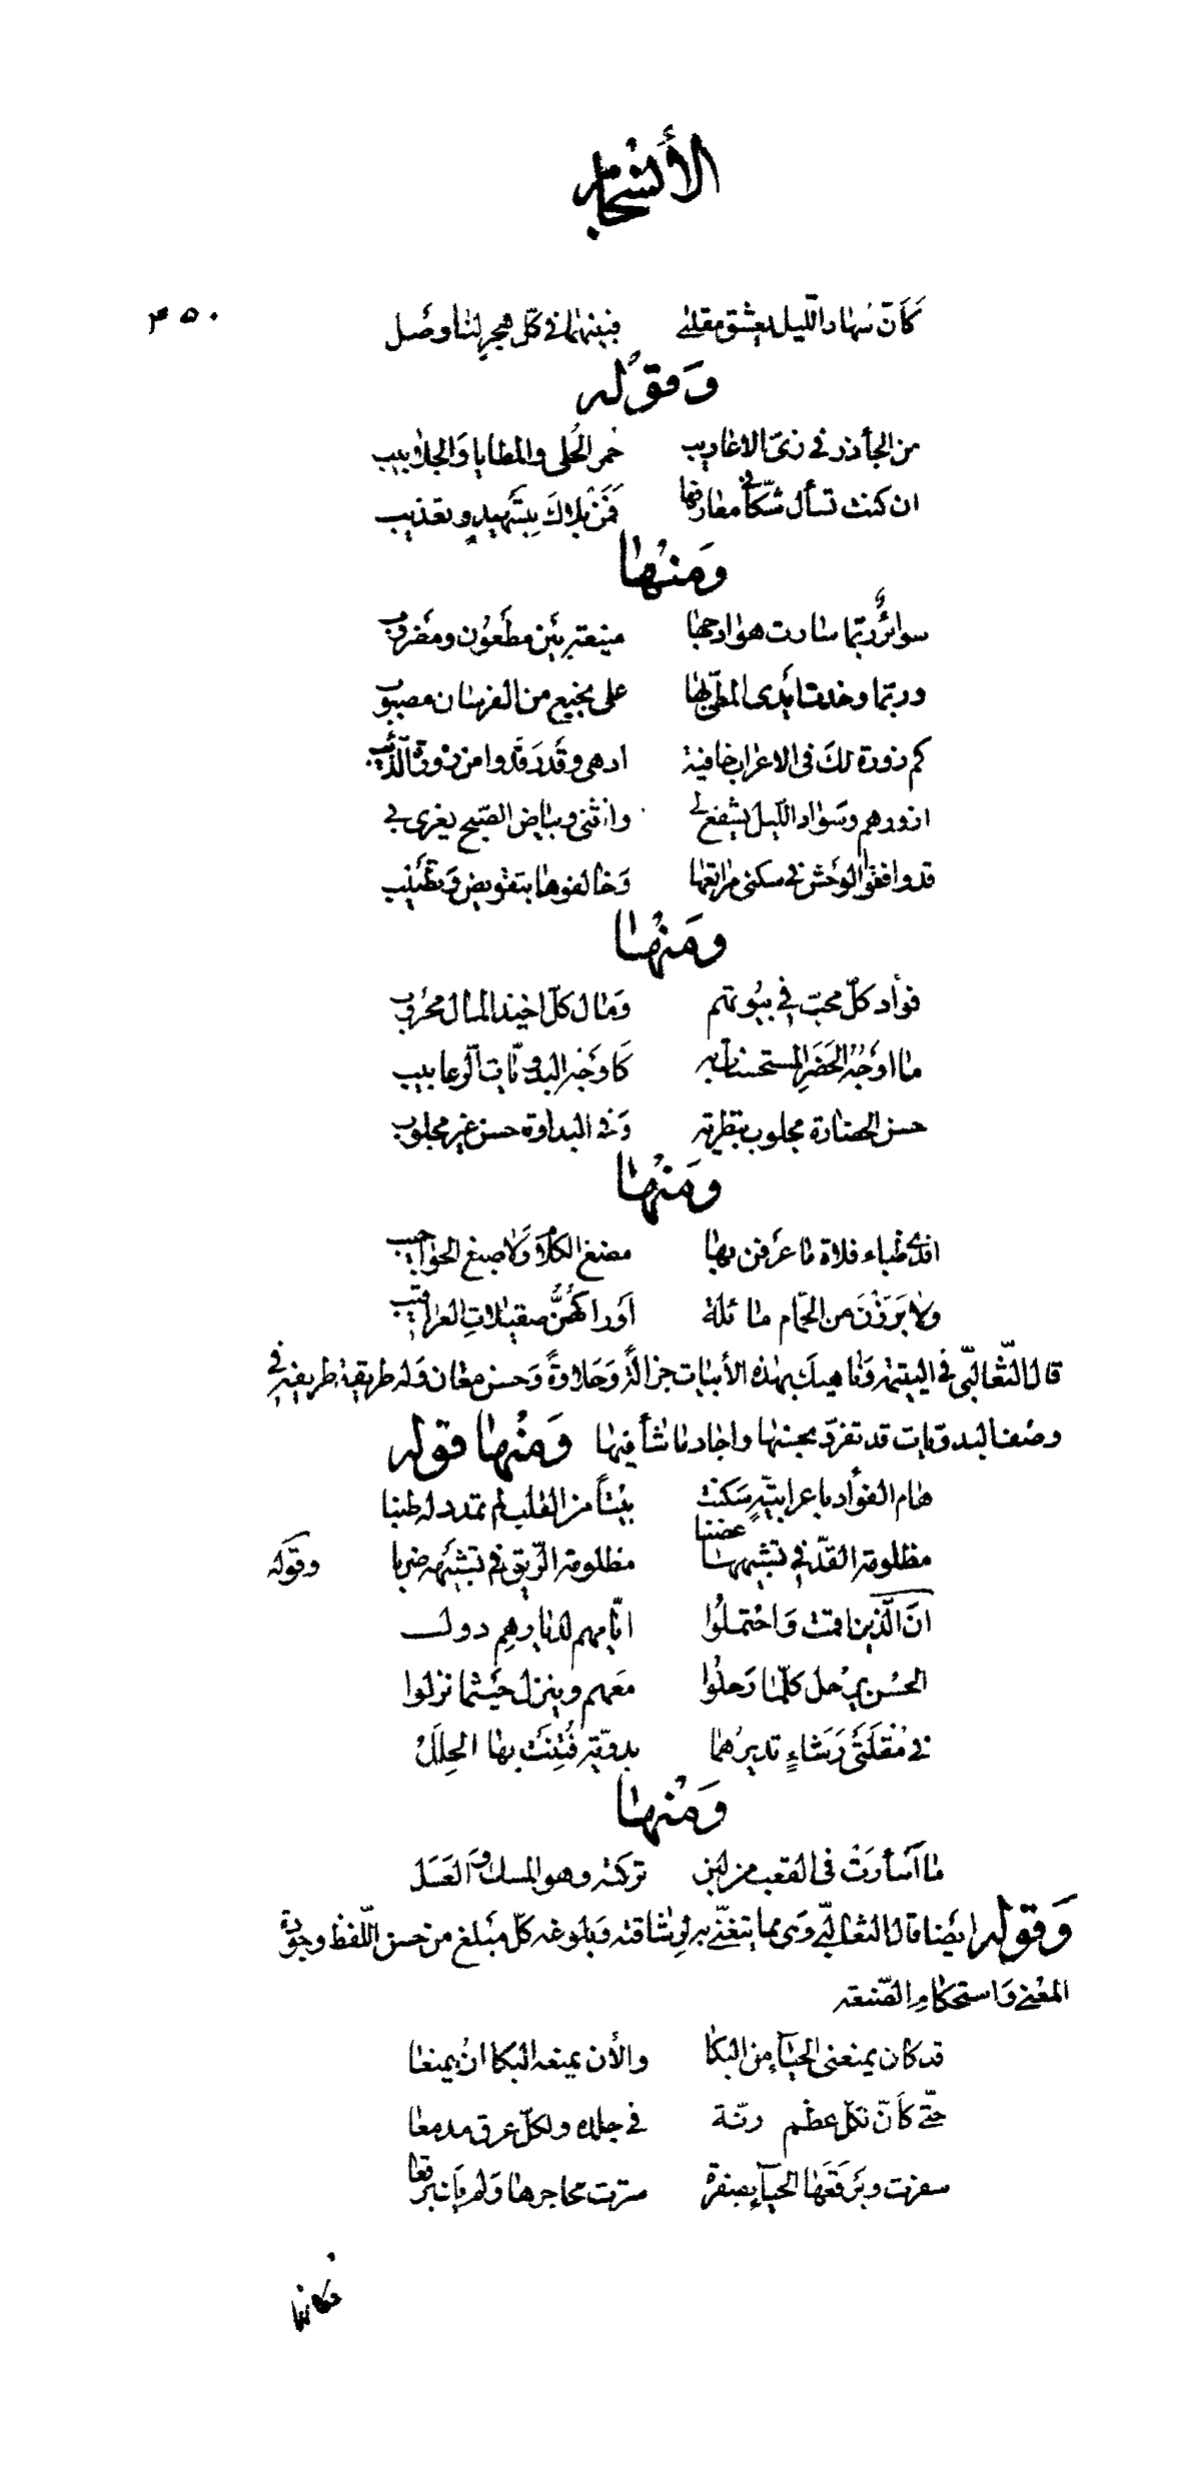 الأشجار
كَأَنّ سُهاد اللّيل يعشق مقلتي فبينهما في كلّ هجرٍ لنا وصل
٤٥٠
وَقوله
من الجأذر في زيّ الاعاريب حمر الحُلى والمطايا وَالجلابيب
ان كنت تسأل شكّا في معارفها فَمَنْ بلاكَ بِتَسهيدٍ وتعذيب
وَمنها
سوائرٌ ربّما سارت هوادجها منيعة بَين مطعُون ومَضروب
وربّما وخدت أيدى المطيّ بها على نجيع من الفرسان مصبوب
كم زورة لكَ فى الاعراب خافية ادهى وقَدرَقَدوا من زورة الذّئب
ازورهم وسَواد اللّيل يشفع لى وانثنى وبياض الصّبح يغرى بي
قد وافقوا الوحش في سكنى مراتعها وَخالفوها بتقويض وَتطنيب
ومَنها
فوأد كلّ محبّ في بيُوتهم وَمال كلّ اخيذ المال محرُوب
ما اوجُهُ الحَضَرِ المستحسنات به كَاوجُه البدويّات الرّعابيب
حسن الحضارة مجلوب بتطرية وَفى البداوة حسن غير مجلوب
ومَنُها
افدى ظباء فلاة ما عرَفن بها مضغ الكلام وَلا صبغ الحواجيب
ولا بَرَزْنَ من الحمّام مائلة اَوراكُهُنَّ صقيلاتِ العراقيب
قال الثّعالبّي في اليتيمه وَناهيكَ بهذه الأبيات جزالةً وَحَلاوةً وَحسن معان وَله طريقة ظريفة في
وصف البدويات قد تفرّد بحسنها واجاد ما شأ فيها وَمنُها قوله
هام الفوأد باعرابيّةٍ سَكنت بيْتاً من القلب لم تمدد له طنبا
مظلومة القدّ في تشبيهها غصنا مظلومة الرّيق في تشبيهه ضربا وقوَله
انّ الّذين اقمت وَاحْتملُوا ايّامهم لديارهِم دول
الحسْن يرْحل كلّما رَحلُوا معَهم وينزل حَيْثما نزلوا
في مُقلَتَى رَشاءٍ تديرُهما بدويّة فُتِنَتْ بها الحِلَلُ
وَمنْها
ما اَسأرَتْ فى القعب من لبن تركته وهو المسك وَالعَسَل
وَقوله ايضا قال الثعالبّي وَهى مما يتغنّى به لرشاقته وَبلوغه كلّ مبلغ من حسن اللّفظ وجودة
المعْنى وَاستحكامِ الصّنعه
قد كان يمنعنى الحياء من البكا والأن يمنعه البكا ان يمنعا
حتّى كَأنّ لكلّ عظم رنّة في جلده ولكلّ عرق مدمعا
سفرت وبَرقَعَها الحياء بصفرة سترت محاجرها وَلم تك برقعا
فكانها